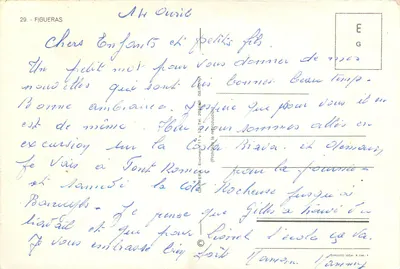 14 Avril
29 - FIGUERAS.
E
G
Chers Enfants et petits fils.
Un petit mot pour vous donner de mes
nouvelles que sont très bonnes beau temps.
Bonne ambiance. J'espère que pour vous il en
est de même. Hier nous sommes allés en
excursion sur la Costa Brava. et demain,
Je vais à Font Romeu pour la journée
et samedi la côte Rocheuse jusqu'à
Je pense que Gilles a trouvé du
travail et que pour Lionel l'école ça va.
Je vous embrasse bien fort Maman Mammy